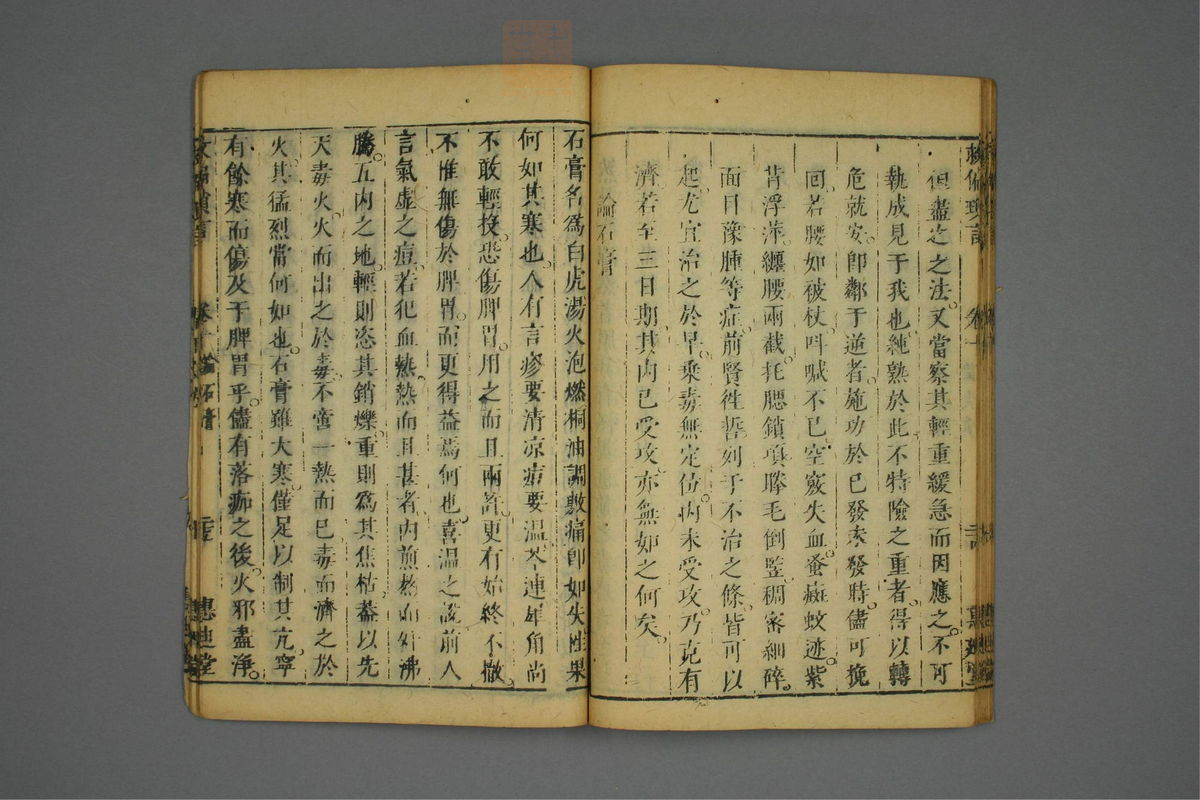 救偏瑣言 卷一 惠迪堂
但盡之之法又當察其輕重緩急而因應之不可
執成見于我也純熟於此不特險之重者得以轉
危就安卽鄰于逆者施功於已發未發時儘可挽
回若腰如被杖叫喊不已空竅失血蚤癍蚊迹紫
背浮萍纏腰兩截托腮鎖項攀毛倒豎稠密細碎
面目豫腫等症前賢徃哲列于不治之條皆可以
起尤宜治之於早乘毒無定位內未受攻乃克有
濟若至三日期其內已受攻亦無如之何矣
論石膏
石膏名爲白虎湯火泡燃桐油調敷痛卽如失性果
何如其寒也人有言疹要清凉痘要温芩連犀角尚
不敢輕投恐傷脾胃用之而且兩許更有始終不撤
不惟無傷於脾胃而更得益焉何也喜温之說前人
言氣虛之痘若犯血熱熱而且甚者內煎熬而如沸
騰五內之地輕則恣其銷爍重則爲其焦枯葢以先
天毒火火而出之於毒不啻一熱而已毒而濟之於
火其猛烈當何如也石膏雖大寒僅足以制其亢寧
有餘寒而傷及于脾胃乎儘有落痂之後火邪盡淨
卷一 論石膏 惠迪堂